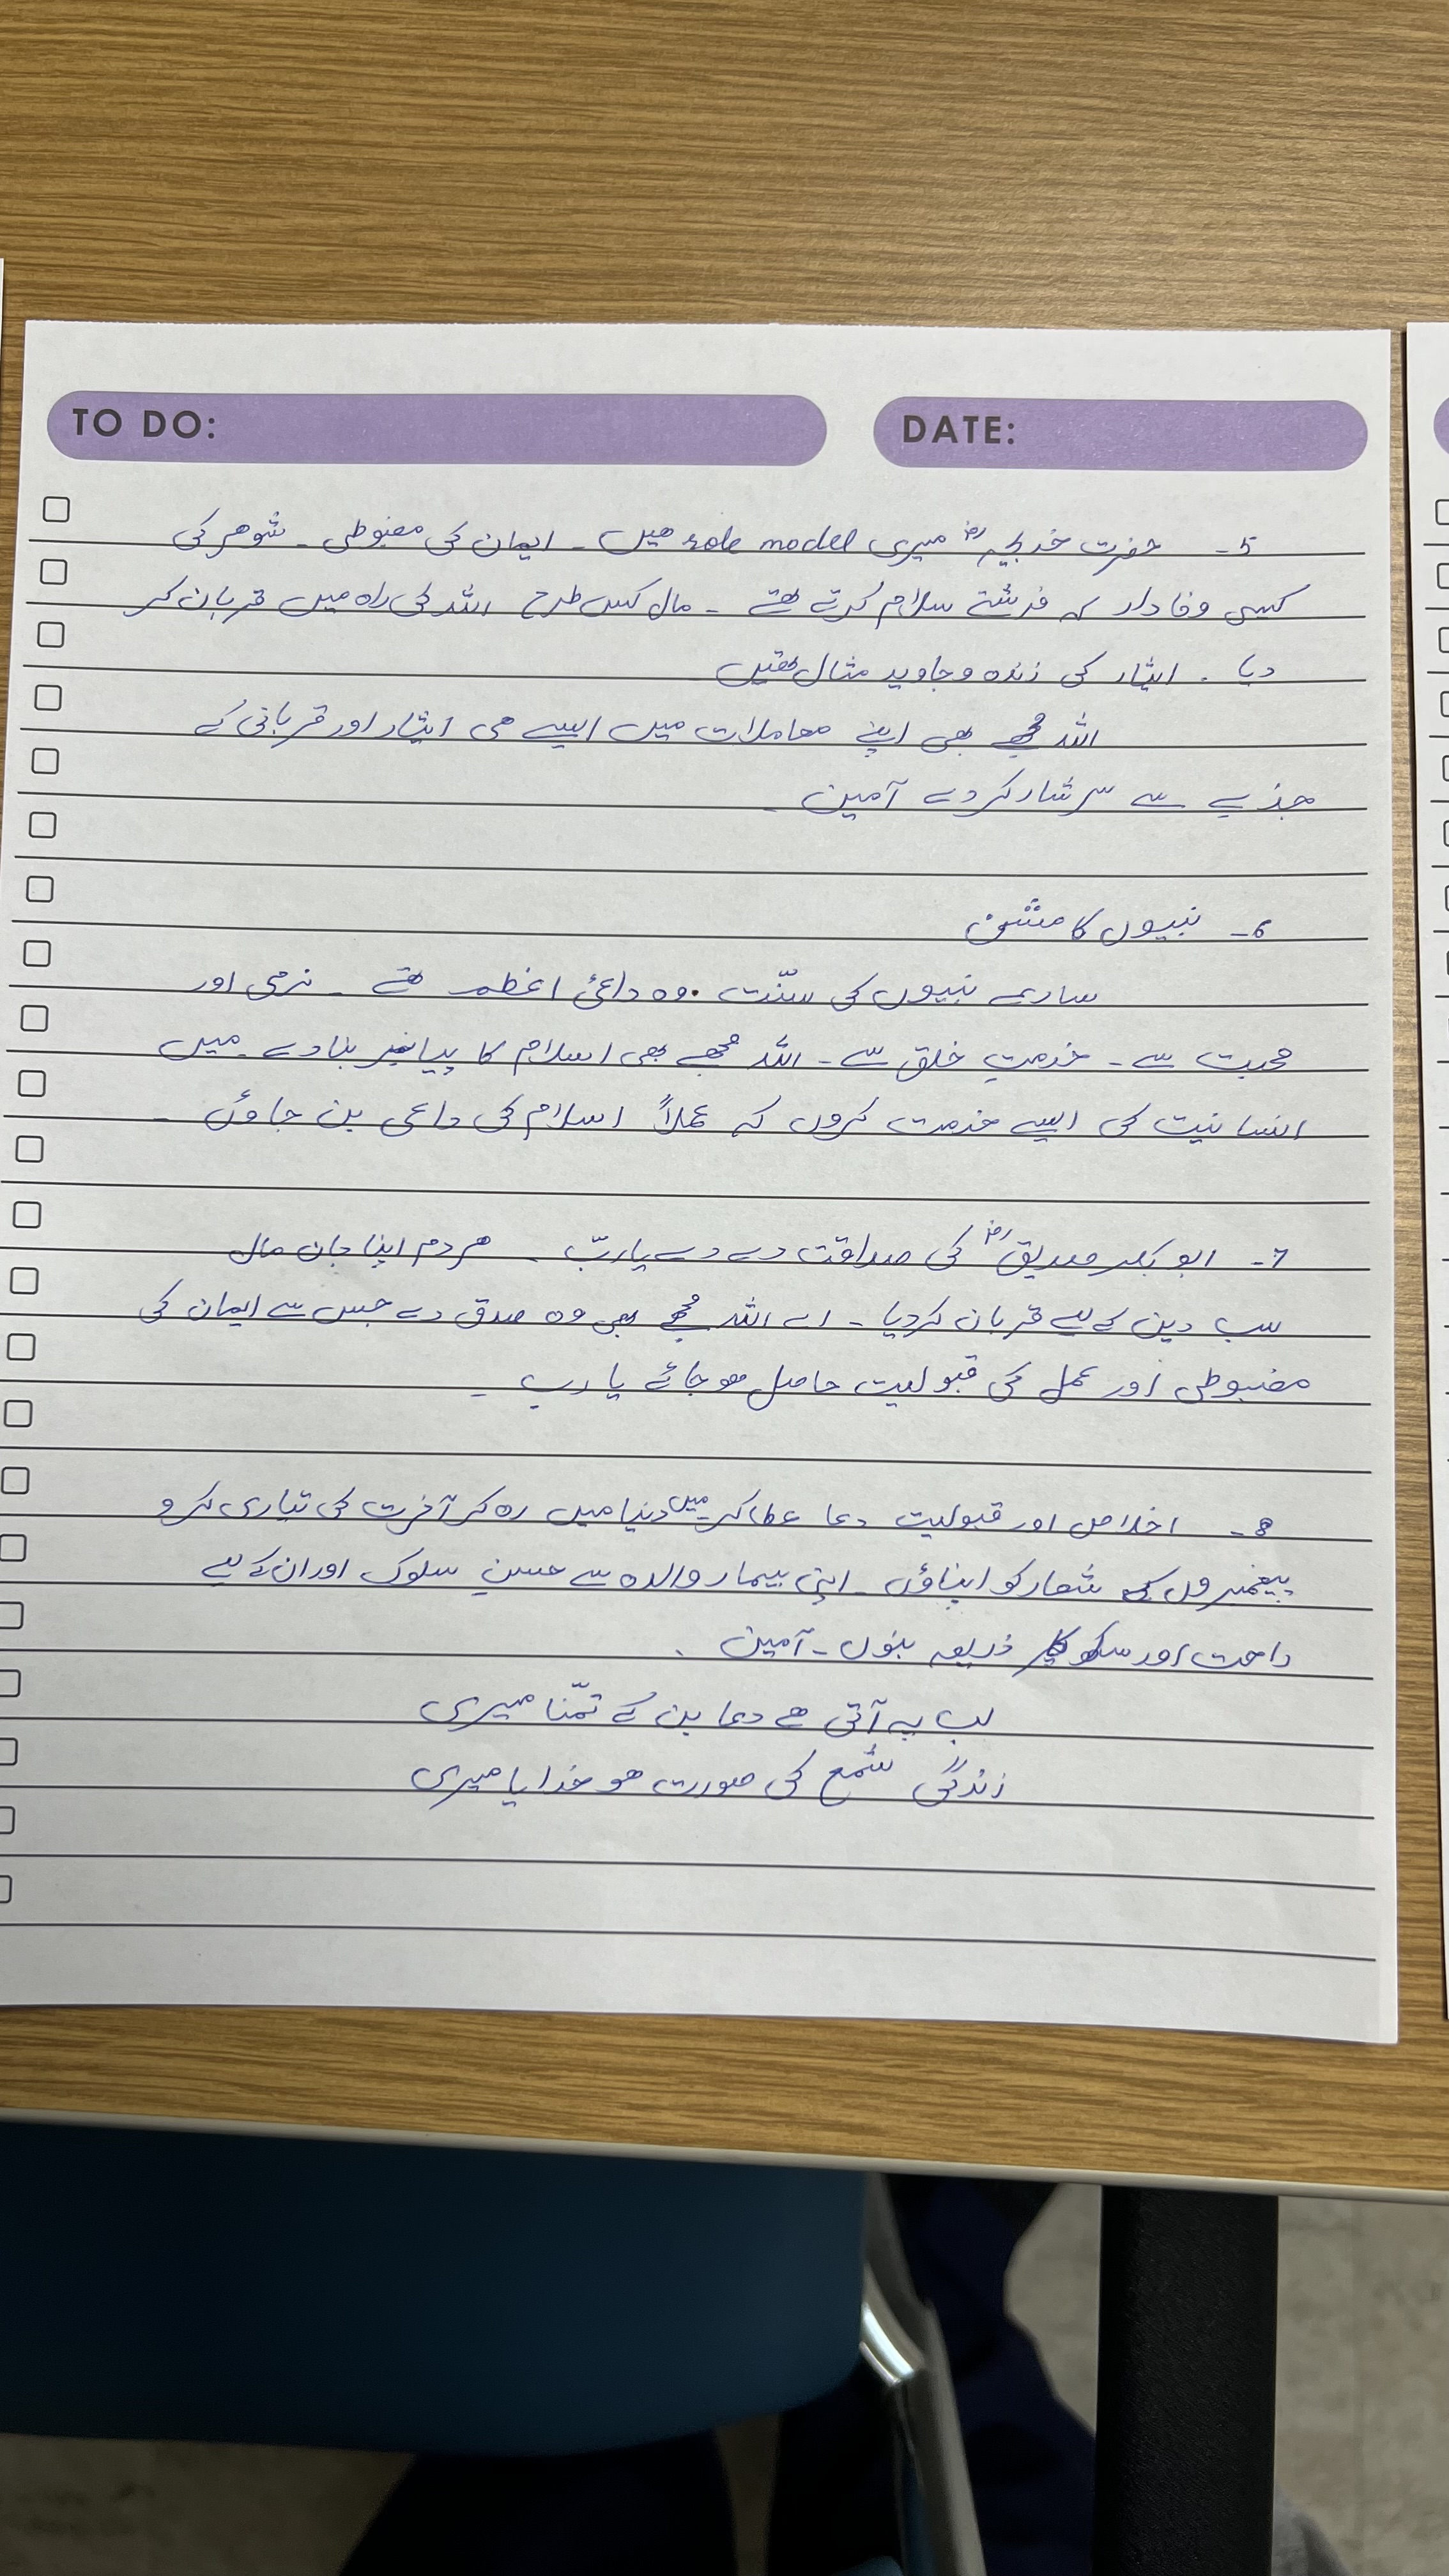 TO DO:
DATE:
5- حضرت خدیجہ رضؓ میری role model ھیں ۔ ایمان کی مضبوطی ۔ شوھر کی
کیسی وفادار کہ فرشتے سلام کرتے تھے ۔ مال کس طرح اللہ کی راہ میں قربان کر
دیا ۔ ایثار کی زندہ و جاوید مثال تھیں
اللہ مجھے بھی اپنے معاملات میں ایسے ھی ایثار اور قربانی کے
جذبے سے سرشار کر دے آمین ۔
6- نبیوں کا مشن
سارے نبیوں کی سنّت ۔ وہ داعئ اعظم تھے ۔ نرمی اور
محبت سے ۔ خدمتِ خلق سے ۔ اللہ مجھے بھی اسلام کا پیامبر بنا دے ۔ میں
انسانیت کی ایسے خدمت کروں کہ عملاً اسلام کی داعی بن جاؤں ۔
7- ابو بکر صدیق رضؓ کی صداقت دے دے یا ربّ ۔ ھر دم اپنا جان مال
سب دین کے لیے قربان کر دیا ۔ اے اللہ مجھے بھی وہ صدق دے جس سے ایمان کی
مضبوطی اور عمل کی قبولیت حاصل ھو جائے یا رب ۔
8- اخلاص اور قبولیت دعا عطا کر ۔ میں دنیا میں رہ کر آخرت کی تیاری کرو
پیغمبروں کے شعار کو اپناؤں ۔ اپنی بیمار والدہ سے حسنِ سلوک اور ان کے لیے
راحت اور سکو کا ذریعہ بنوں ۔ آمین ۔
لب پہ آتی ھے دعا بن کے تمّنا میری
زندگی شمع کی صورت ھو خدایا میری